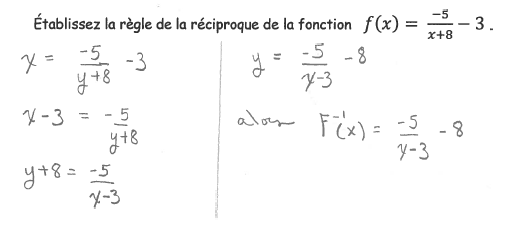 Établissez la règle de la réciproque de la fonction f(x) = -5/(x+8) − 3 .
x = -5/(y+8) -3
x-3 = -5/(y+8)
y+8 = -5/(x-3)
y = -5/(x-3) -8
alors F⁻¹(x) = -5/(x-3) -8